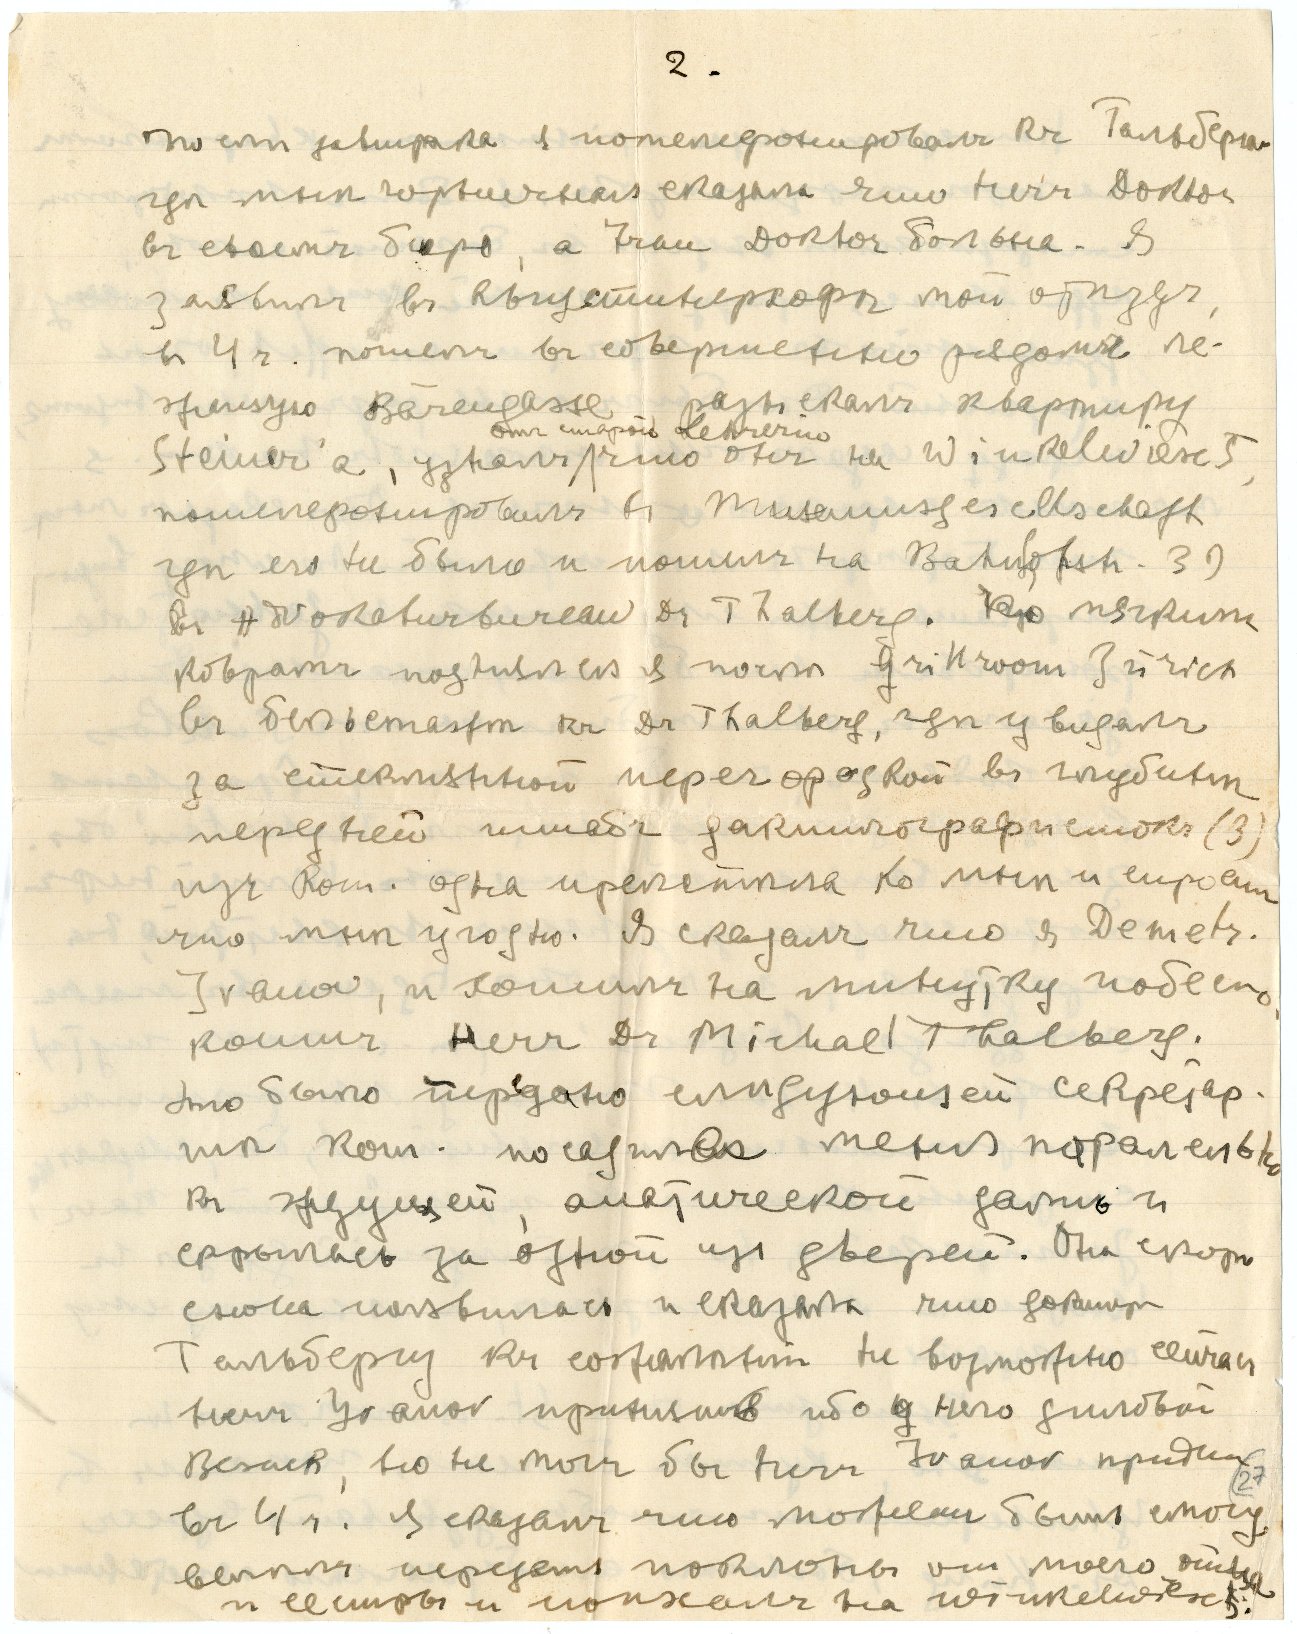 2.
Послѣ завтрака я потелефонировалъ къ Тальбергамъ
гдѣ мнѣ горничная сказала что Herr Doktor
въ своемъ бюро, а Frau Doktor больна. Я
заявилъ въ мой отъѣздъ,
въ 4 ч. пошелъ въ совершенно рядомъ ле-
жащую Bärengasse разыскалъ квартиру
отъ старой
Steiner'а, узналъ что онъ на Winkelwiese 5,
потелефонировалъ въ Museumsgesellschaft
гдѣ его не было и пошелъ на Bahnhofstr. 39
въ Advokaturbureau Dr Thalberg. По мягкимъ
коврамъ поднялся я послѣ Grillroom Zürich
въ бельэтажъ къ Dr Thalberg, гдѣ увидалъ
за стеклянной перегородкой въ глубинѣ
передней штабъ дактилографистокъ (3)
изъ кот. одна прилетѣла ко мнѣ и спросила
что мнѣ угодно. Я сказалъ что я Demetr.
Ivanov, и хотѣлъ на минутку побезпо-
коить Herr Dr Michael Thalberg.
Это было передано слѣдующей секретар-
шѣ кот. посадила меня параллельно
къ ждущей, апатической дамѣ и
скрылась за одной изъ дверей. Она скоро
снова появилась и сказала что доктору
Тальбергу къ сожалѣнію не возможно сейчасъ
Herr Ivanov принять ибо у него дѣловой
Besuch, но не могъ бы Herr Ivanov придти
въ 4 ч. Я сказалъ что можетъ быть смогу,
велѣлъ передать поклоны отъ моего отца
и сестры и поѣхалъ на Winkelwiese 5.
27